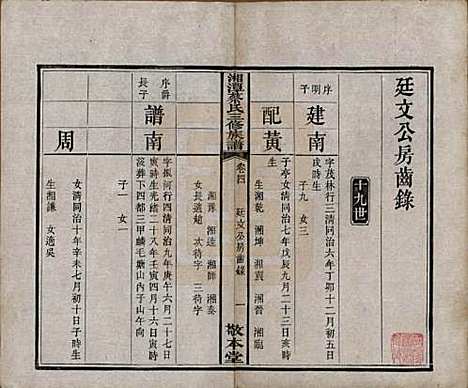 廷文公房齒錄
十九世
序明子
建南
字茂林行三清同治六年丁卯十二月初五日
戌時生
子九 女三
配黃
子亭女清同治七年戊辰八月二十三日亥時
生湘乾 湘坤 湘袁 湘晉 湘臨
湘豫 湘逵 湘師 湘泰
女長適趙 次待字 三待字
湘潭 氏三修族譜
卷四
廷文公房齒錄
一
敬本堂
序爵長子
譜南
字振河行四清同治九年庚午六月二十七日
寅時生宣統三十八年壬寅四月十六日寅時
歿葬下四都三甲麟毛塘山內子山午向
子一 女一
周
女清同治十年辛未七月初十日子時生
生湘謙 女適吳